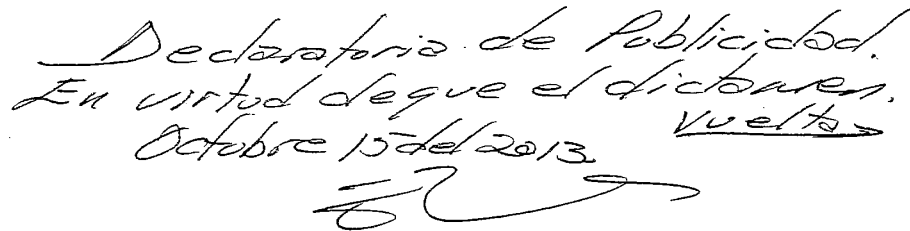 Declaratoria de Publicidad.
En virtud de que el dictamen.
vuelta
Octubre 15 del 2013.